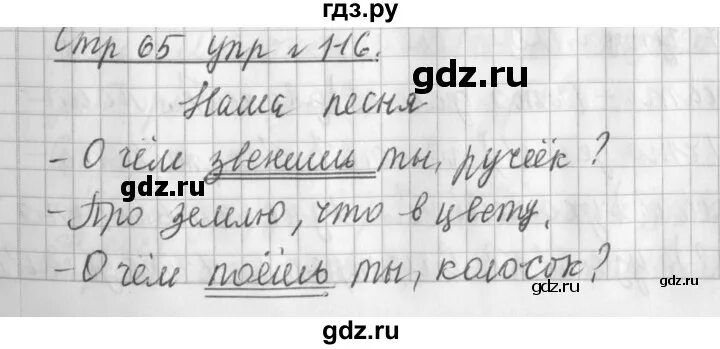 гдз.ру
Стр 65 упр № 116.
gdz.ru
gdz.ru
Наша песня
– О чём звенишь ты, ручеёк?
gdz.ru
gdz.ru
– Про землю, что в цвету.
– О чём поёшь ты, колосок?
gdz.ru
gdz.ru
gdz.ru